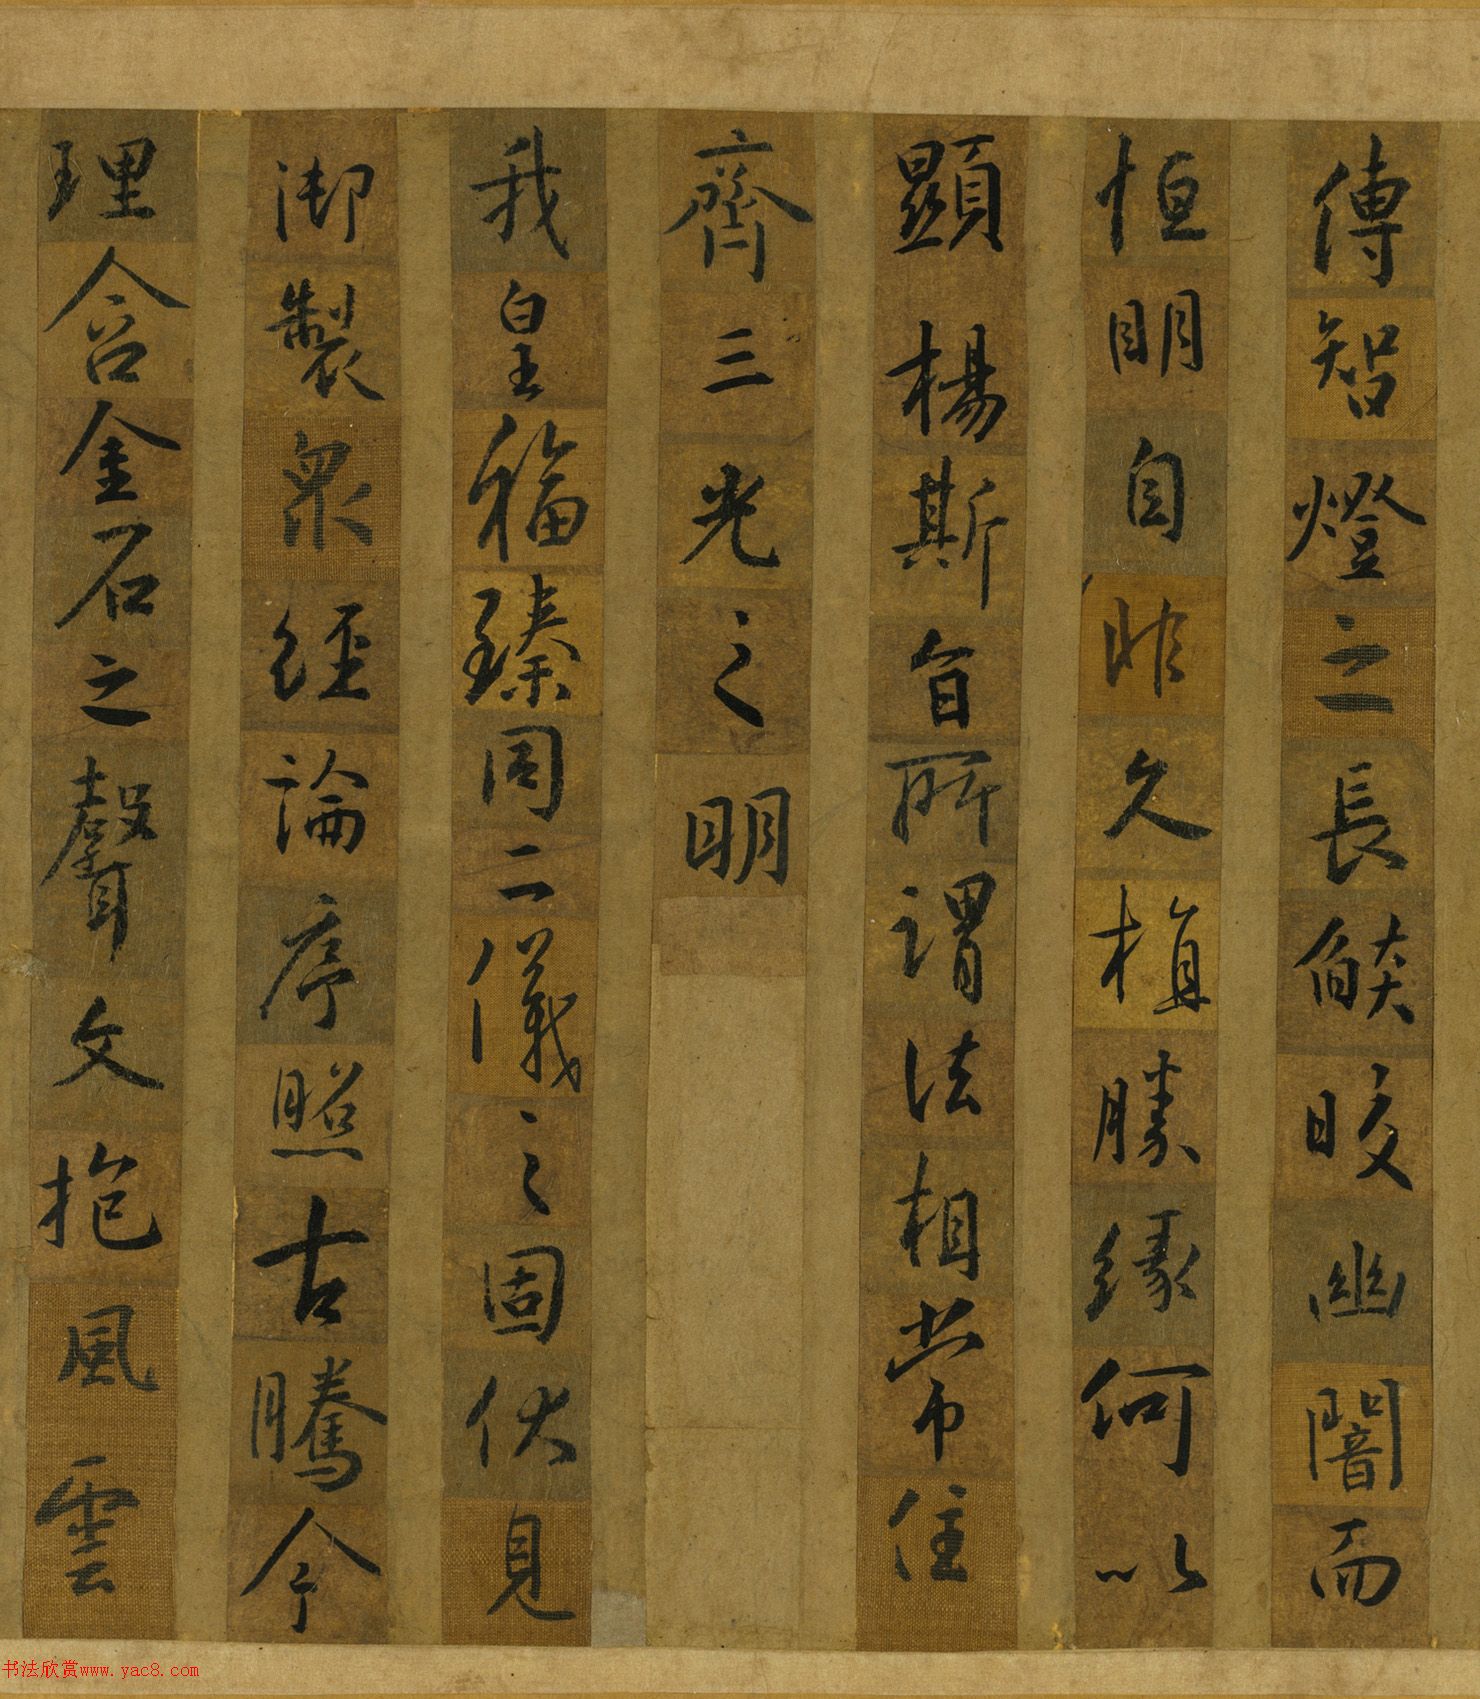 傳智燈之長焰皎幽闇而
恒明自非久植勝緣何以
顯楊斯旨所謂法相常住
齊三光之明
我皇福臻同二儀之固伏見
御製衆經論序照古騰今
理含金石之聲文抱風雲
书法欣赏www.yac8.com